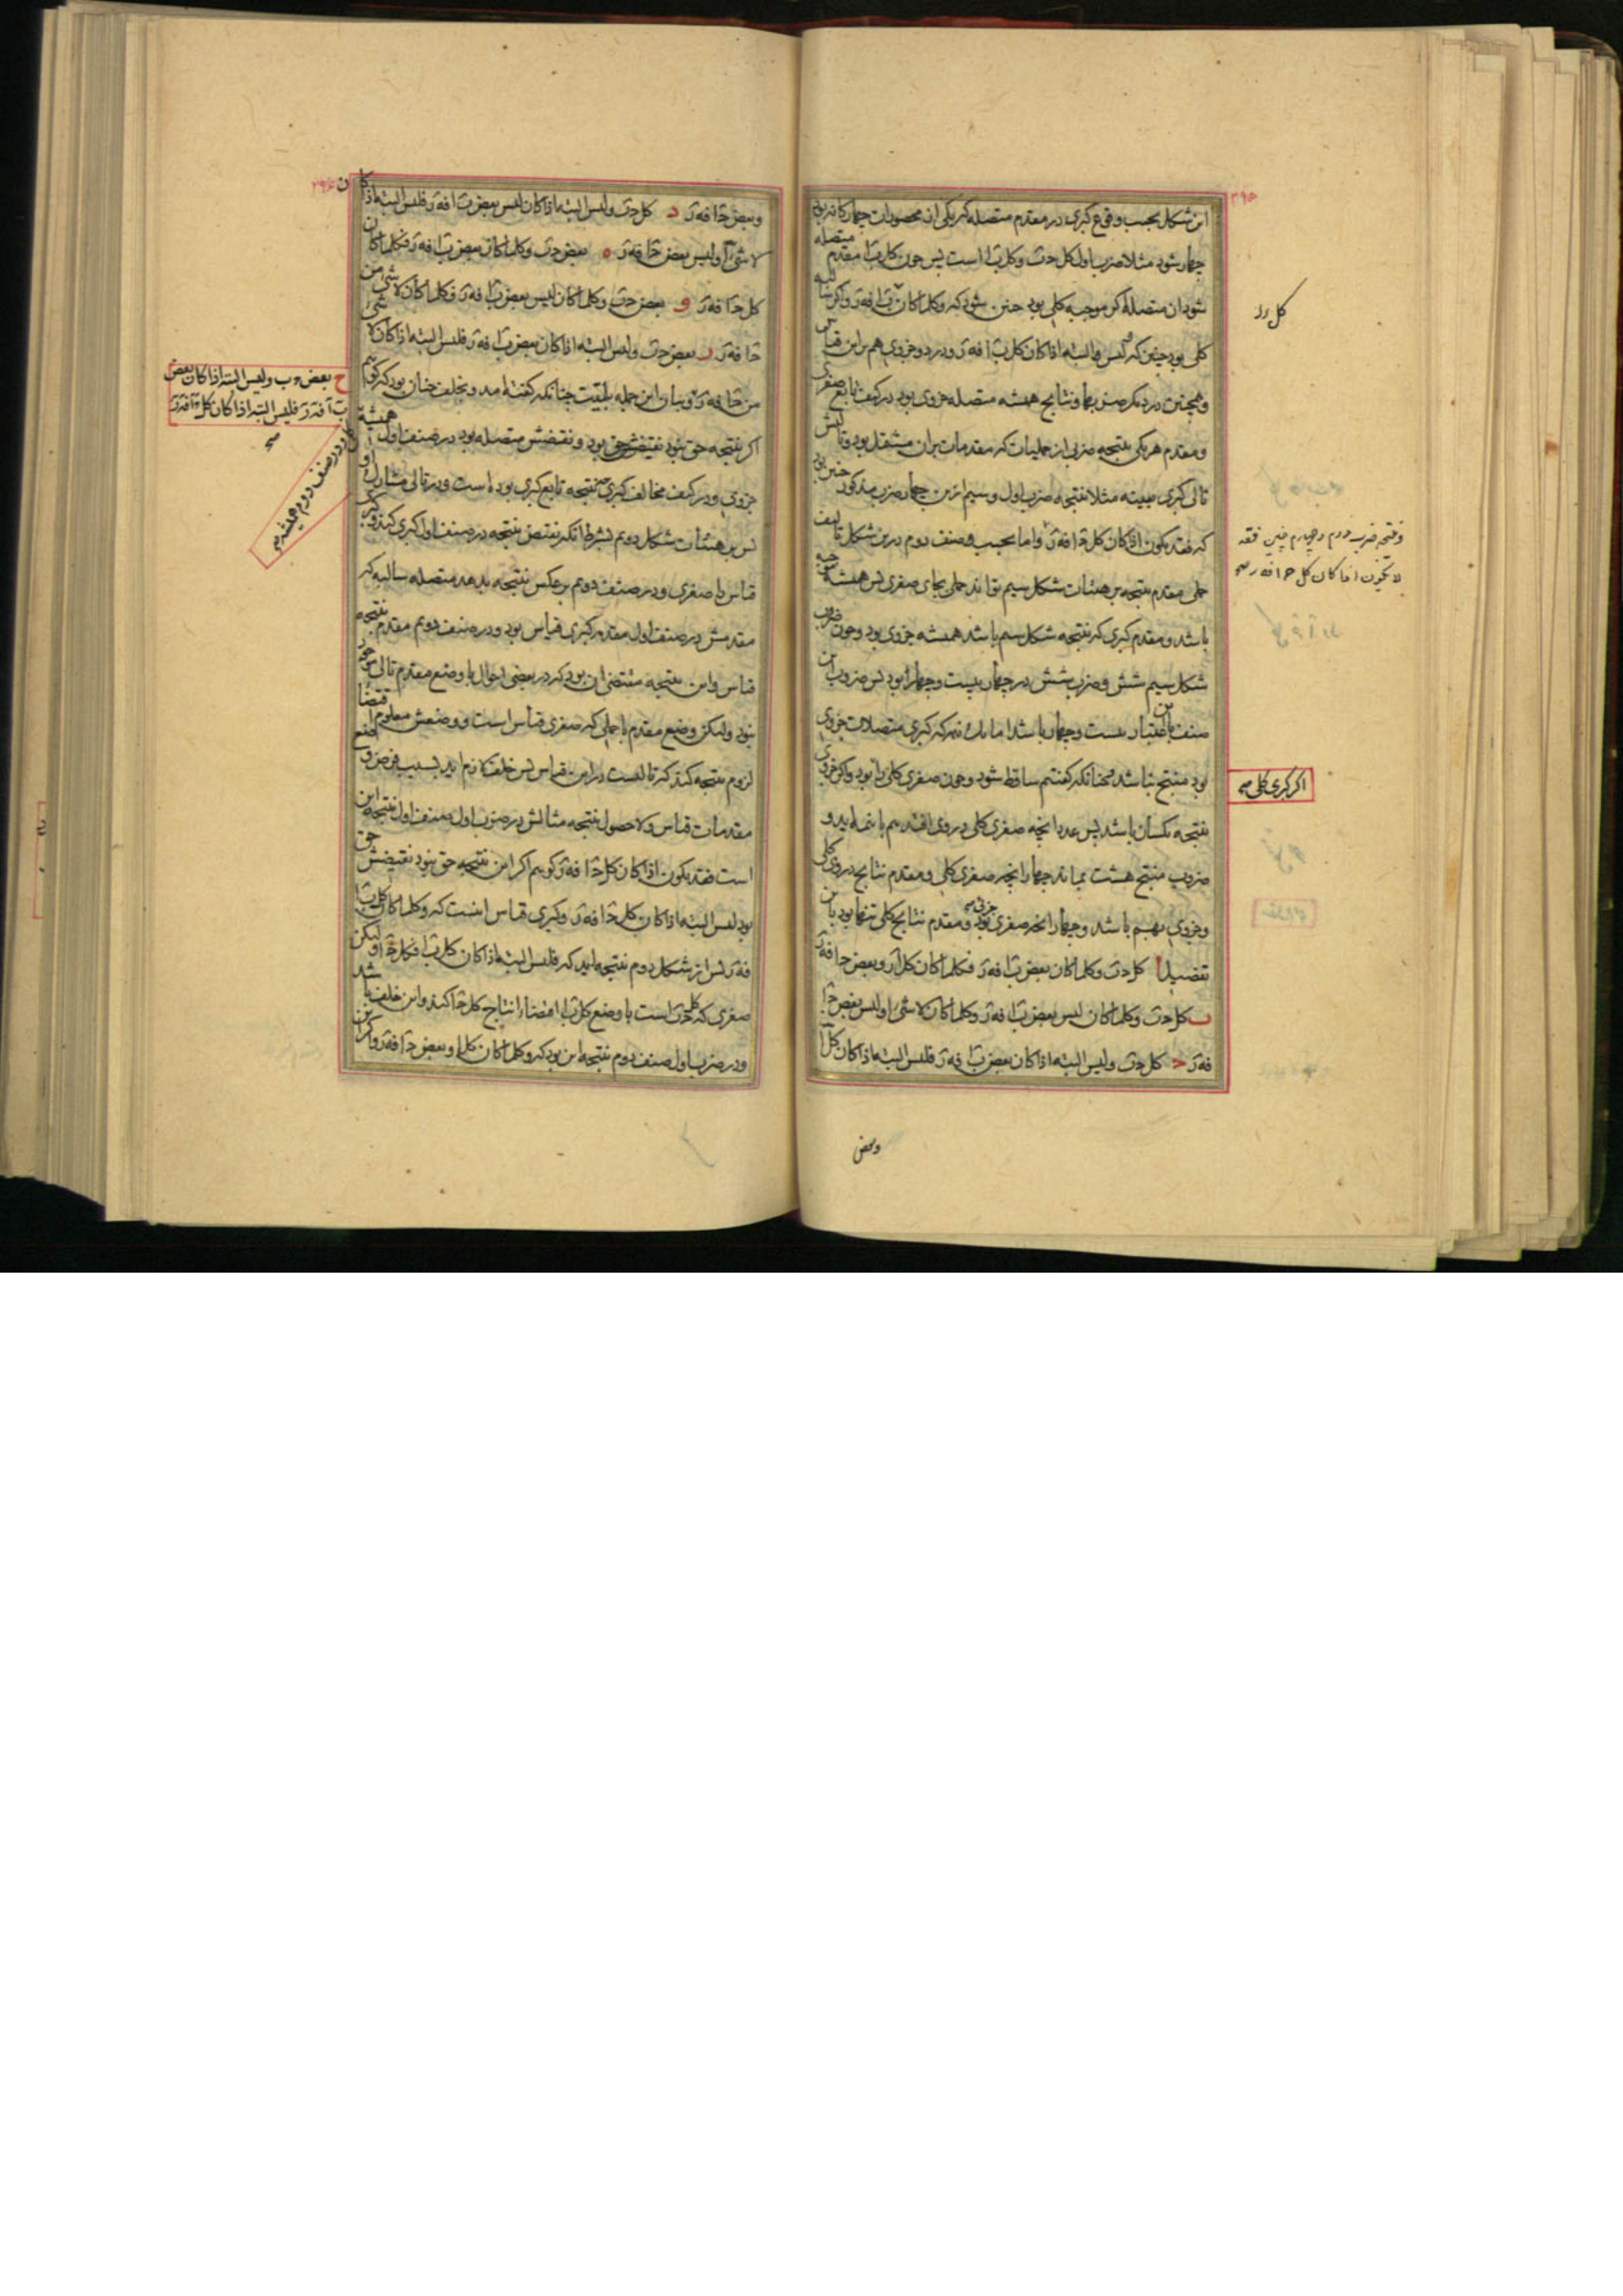 ۲۹۵
این شکل بحسب وقوع کبری در مقدم متصله که یکی از محصورات چهارگانه بود
چهار شود مثلا ضرب اول کل جب وکل با است پس چون کل با مقدم متصله
شود ان متصله اگر موجبه کلی بود چنین شود که وکلما کان کل با فه‌ز واگر سالبه
کلی بود چنین که لیس البته اذا کان کل با فه‌ز ودر دو جزوی هم برین قیاس
وهمچنین در دیگر ضربها ونتایج همیشه متصله جزوی بود در کیف تابع صغری
ومقدم هر یکی نتیجه ضربی از حملیات که مقدمات بران مشتمل بود وتالیش
تالی کبری بعینه مثلا نتیجه ضرب اول وسیم ازین چهار ضرب مذکور چنین بود
که فقد یکون اذا کان کل جا فه‌ز واما بحسب صنف دوم درین شکل تالیف
حملی مقدم نتیجه بر هیئات شکل سیم تواند حملی بجای صغری پس همیشه موجبه
باشد ومقدم کبری که نتیجه شکل سیم باشد همیشه جزوی بود وچون ضروب
شکل سیم شش وضرب شش در چهار بیست وچهار بود پس ضروب این
صنف باین اعتبار بیست وچهار باشد اما یک نیمه که کبری متصلات جزوی
بود منتج نباشد چنانکه گفتیم ساقط شود وچون صغری کلی را بود واگر جزوی
نتیجه یکسان باشد پس عدد انچه صغری کلی دروی افتد نیم با نیمه اید و
ضروب منتج هشت بماند چهار انچه صغری کلی ومقدم نتایج دروی کلی
وجزوی بهم باشد وچهار انچه صغری جزئی بود ومقدم نتایج کلی تنها بود باین
تفصیل ا کل جب وکلما کان بعض با فه‌ز فکلما کان کل ا و بعض جا فه‌ز
ب کل جب وکلما کان لیس بعض با فه‌ز وکلما کان لا شئ ا ولیس بعض جا
فه‌ز ج کل جب ولیس البته اذا کان بعض با فه‌ز فلیس البته اذا کان کل ا
وبعض
کل رز
ونتیجه ضرب دوم وچهارم چنین فقد
لا یکون اذا کان کل جا فه ز صح
اگر کبری کلی صح
۲۹۶
وبعض جا فه‌ز د کل جب ولیس البته اذا کان لیس بعض با فه‌ز فلیس البته اذا کان
لا شئ ا ولیس بعض جا فه‌ز ه بعض جب وکلما کان بعض با فه‌ز فکلما کان
کل جا فه‌ز و بعض جب وکلما کان لیس بعض با فه‌ز فکلما کان لا شئ من
جا فه‌ز ز بعض جب ولیس البته اذا کان بعض با فه‌ز فلیس البته اذا کان لا شئ
من جا فه‌ز وبیان این جمله بلمیت چنانکه گفته امد وبخلف چنان بود که گوییم
اگر نتیجه حق نبود نقیضش حق بود ونقیضش متصله بود در صنف اول همیشه
جزوی ودر کیف مخالف کبری چه نتیجه تابع کبری بوده است ودر تالی مشارک او
پس بر هیئات شکل دویم بشرط انکه نقیض نتیجه در صنف اول کبری کنند وکبری
قیاس را صغری ودر صنف دویم بر عکس نتیجه بدهد متصله سالبه که
مقدمش در صنف اول مقدم کبری قیاس بود ودر صنف دویم مقدم نتیجه
قیاس واین نتیجه مقتضی ان بود که در بعضی احوال با وضع مقدم تالی موجود
نبود ولیکن وضع مقدم با حملی که صغری قیاس است ووضعش معلوم اقتضاء
لزوم نتیجه کند که تالیست درین قیاس پس خلف لازم اید بسبب فرض وضع
مقدمات قیاس ولا حصول نتیجه مثالش در ضرب اول صنف اول نتیجه این
است فقد یکون اذا کان کل جا فه‌ز گوییم اگر این نتیجه حق نبود نقیضش حق
بود لیس البته اذا کان کل جا فه‌ز وکبری قیاس اینست که وکلما کان کل با
فه‌ز پس از شکل دوم نتیجه اید که فلیس البته اذا کان کل با فکل جا ولیکن
صغری که کل جب است با وضع کل با اقتضاء انتاج کل جا کند واین خلف باشد
ودر ضرب اول صنف دوم نتیجه این بود که وکلما کان کل ا وبعض جا فه‌ز واگر این
ح بعض جب ولیس البته اذا کان بعض
ب ا فه‌ز فلیس البته اذا کان کل جا فه‌ز
صح
ودر صنف دوم همیشه